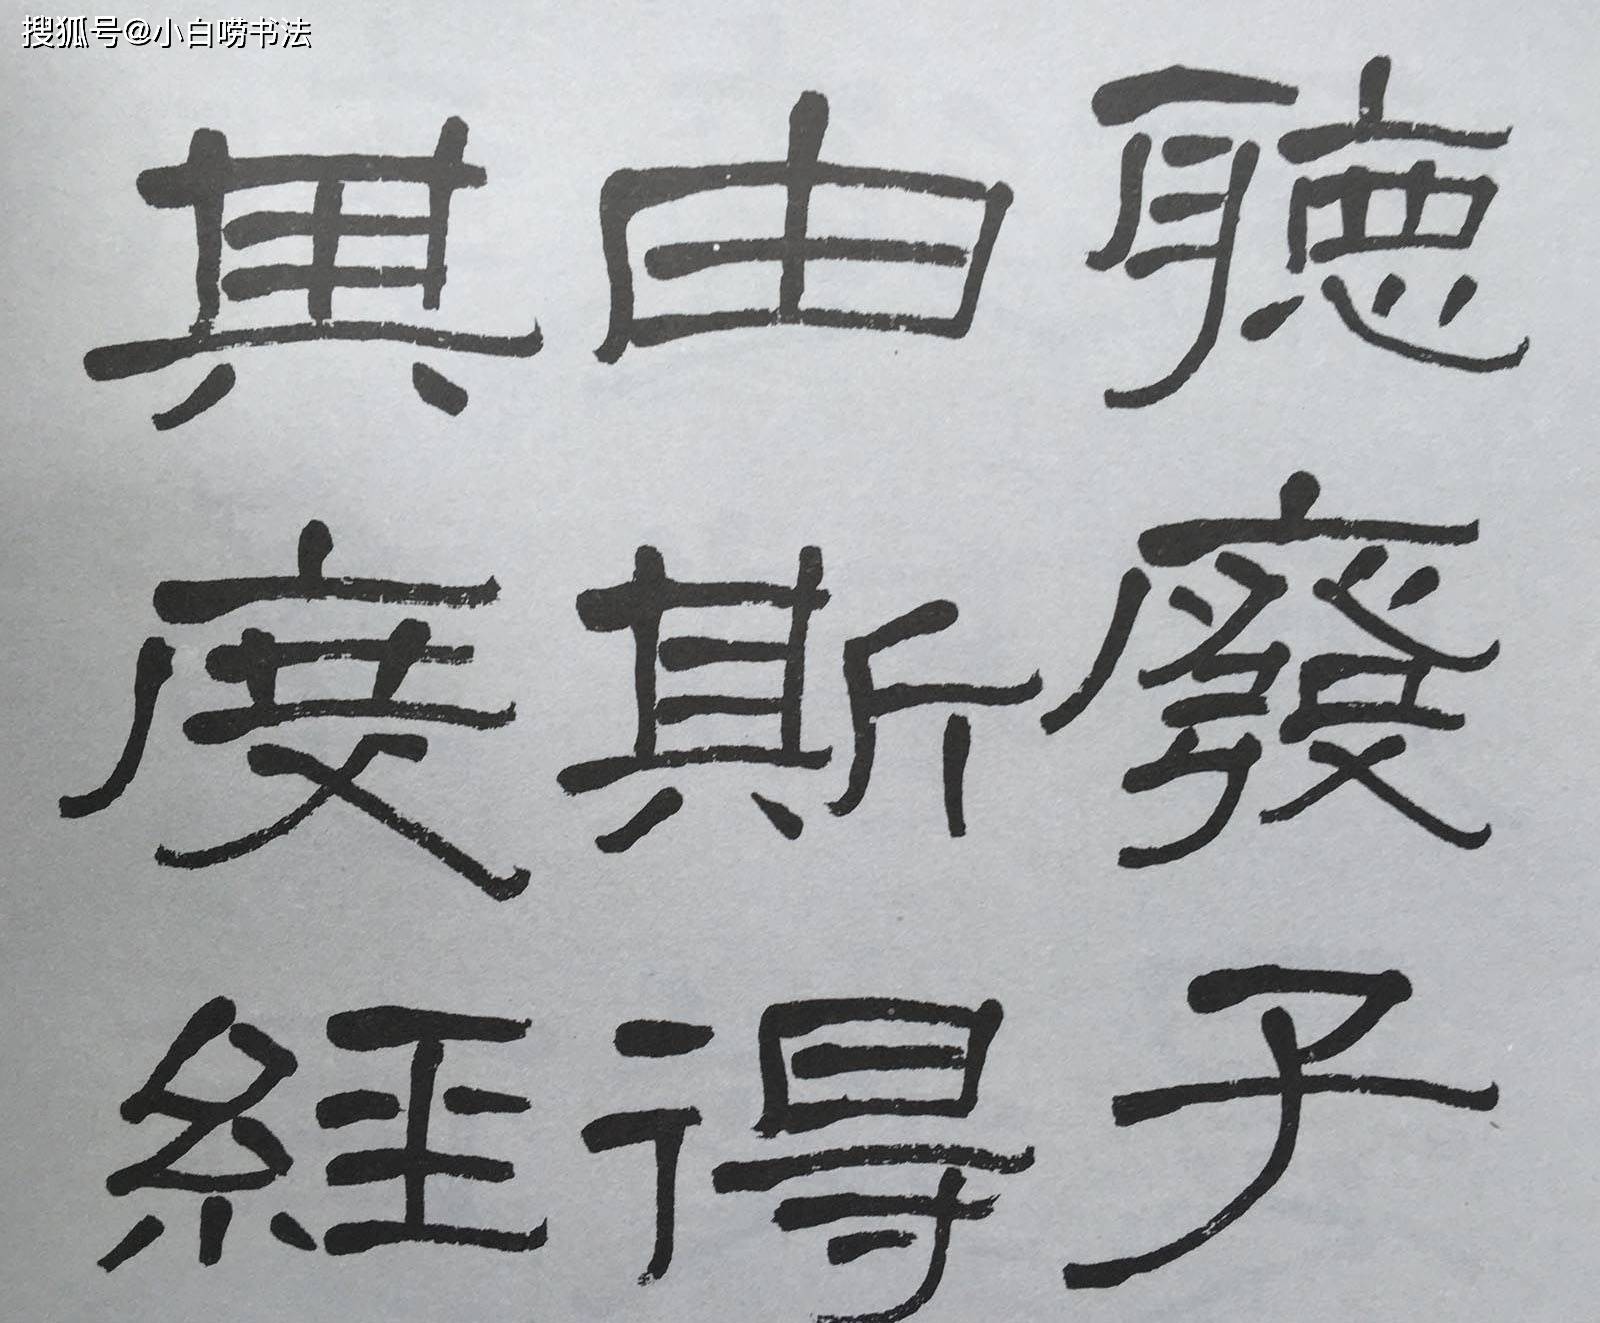 搜狐号@小白唠书法
聽廢子
由斯得
典度經